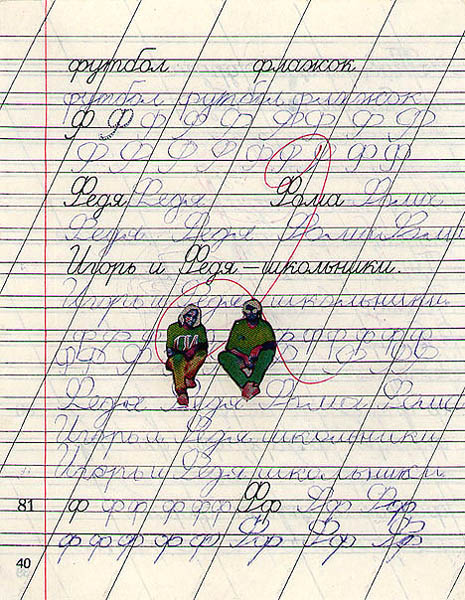 футбол флажок
футбол футбол флажок
Ф Ф Ф Ф Ф Ф Ф Ф Ф Ф
Ф Ф Ф Ф Ф Ф Ф Ф Ф
Федя Федя Фома Фома
Федя Федя Фома Фома
Игорь и Федя – школьники.
Игорь и Федя школьники.
Федя Федя Фома Фома
Игорь и Федя школьники
Игорь и Федя школьники.
81 ф ф ф ф ф ф Фф Фф Фф
ф ф ф ф ф ф Фф Фф Фф
40